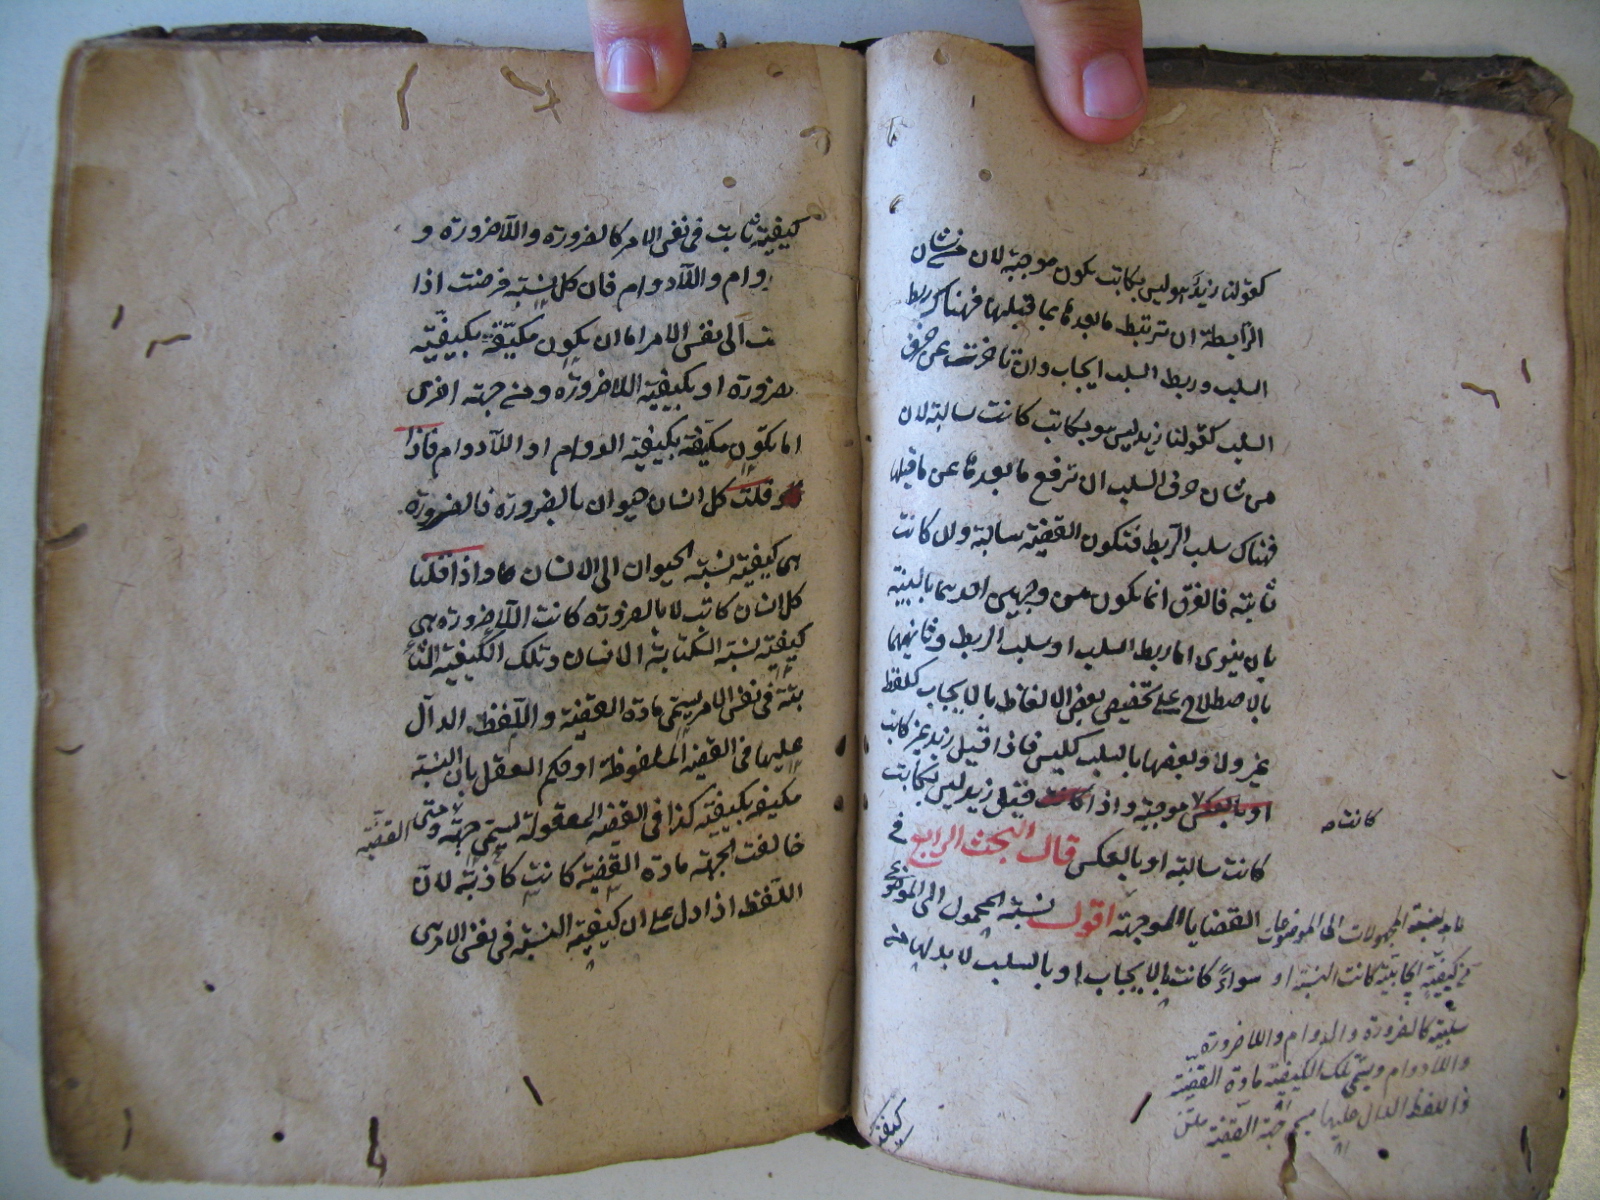 كقولنا زيد هو ليس بكاتب يكون موجبة لان من شان
الرابطة ان ترتبط ما بعدها بما قبلها فهناك ربط
السلب وربط السلب ايجاب وان تاخرت عن حرف
السلب كقولنا زيد ليس هو بكاتب كانت سالبة لان
من شان حرف السلب ان ترفع ما بعدها عن ما قبلها
فهناك سلب الربط فتكون القضية سالبة وان كانت
ثنائية فالفرق انما يكون من وجهين احدهما بالنية
بان ينوى اما ربط السلب او سلب الربط وثانيهما
بالاصطلاح على تخصيص بعض الالفاظ بالايجاب كلفظ
غير ولا وبعضها بالسلب كليس فاذا قيل زيد غير كاتب
او لا كاتب موجبة واذا قيل زيد ليس بكاتب
كانت
كانت سالبة او بالعكس قال البحث الرابع في
القضايا الموجهة اقول نسبة المحمول الى الموضوع
سواء كانت بالايجاب او بالسلب لا بد لها من
لا بد لنسبة المحمولات الى الموضوعات
من كيفية ايجابية كانت النسبة او
سلبية كالضرورة والدوام واللاضرورة
واللادوام ويسمى تلك الكيفية مادة القضية
واللفظ الدال عليها يسمى جهة القضية متن
كيفية
كيفية ثابت في نفس الامر كالضرورة واللاضرورة و
دوام واللادوام فان كل نسبة فرضت اذا
ت الى نفس الامر اما ان يكون مكيفة بكيفية
ضرورة او بكيفية اللاضرورة ومن جهة اخرى
اما يكون مكيفة بكيفية الدوام او اللادوام فاذا
قلت كل انسان حيوان بالضرورة فالضرورة
هي كيفية نسبة الحيوان الى الانسان واذا قلنا
كل انسان كاتب لا بالضرورة كانت اللاضرورة هي
كيفية نسبة الكتابة الانسان وتلك الكيفية الثا
بتة في نفس الامر يسمى مادة القضية واللفظ الدال
عليها في القضية الملفوظة او حكم العقل بان النسبة
مكيفة بكيفية كذا في القضية المعقولة يسمى جهة ومتى
القضية
خالفت الجهة مادة القضية كانت كاذبة لان
اللفظ اذا دل على ان كيفية النسبة في نفس الامر هي